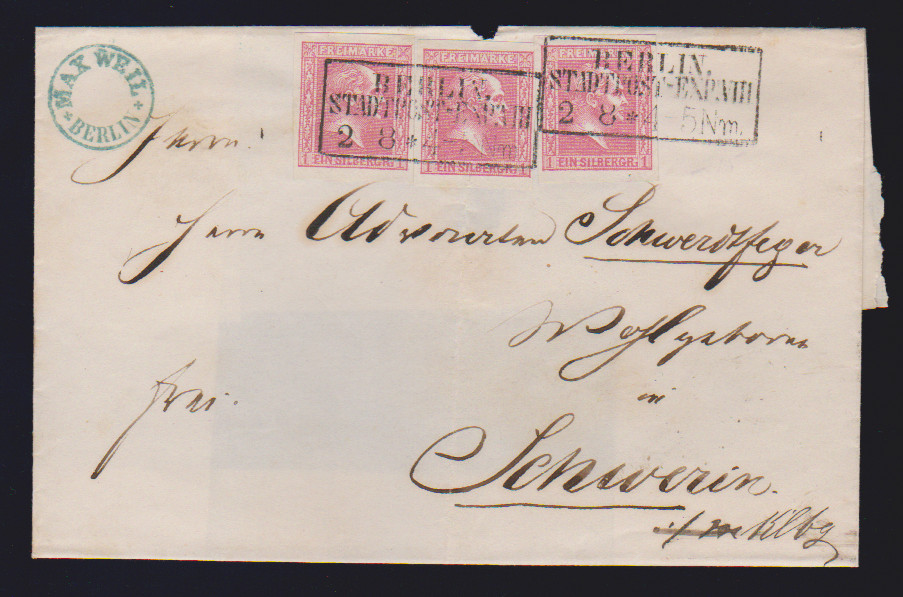 MAX WEIL
* BERLIN *
FREIMARKE
1 EIN SILBERGR. 1
FREIMARKE
1 EIN SILBERGR. 1
FREIMARKE
1 EIN SILBERGR. 1
BERLIN.
STADTPOST-EXP.VIII
2 8 * 4-5 Nm.
BERLIN.
STADTPOST-EXP.VIII
2 8 * 4-5 Nm.
Herrn
Herrn Advocaten Schwerdtfeger
Wohlgeboren
in
frei.
Schwerin.
i/mklbg